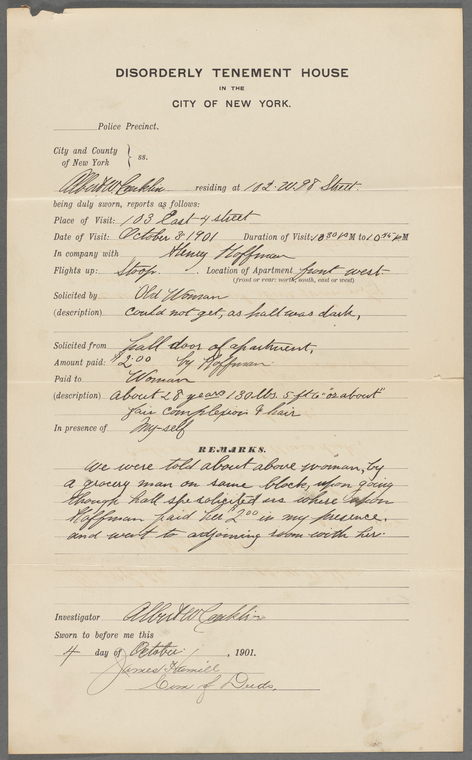 DISORDERLY TENEMENT HOUSE
IN THE
CITY OF NEW YORK.
Police Precinct.
City and County
of New York } ss.
Albert W Conklin residing at 102 W 98 Street.
being duly sworn, reports as follows:
Place of Visit: 103 East 4 street
Date of Visit: October 3 1901 Duration of Visit: 10 30 P M to 10 45 P M
In company with Henry Hoffman
Flights up: Stoop. Location of Apartment front west.
(front or rear: north, south, east or west)
Solicited by Old Woman
(description) could not get, as hall was dark,
Solicited from hall door of apartment,
Amount paid: $2.00 by Hoffman
Paid to Woman
(description) about 28 years 130 lbs. 5 ft 6" or about"
fair complexion & hair
In presence of My-self
REMARKS.
We were told about above woman, by
a grocery man on same block, upon going
though hall she solicited us where upon
Hoffman paid her $2.00 in my presence.
and went to adjoining room with her.
Investigator Albert W Conklin
Sworn to before me this
4 day of October, 1901.
James Hamill
Com of Deeds,